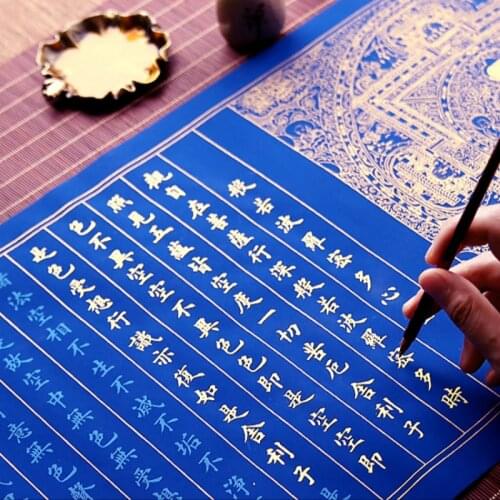 般若波羅蜜多心
觀自在菩薩行深般若波羅蜜多時
照見五蘊皆空度一切苦厄舍利子
色不異空空不異色色即是空空即
是色受想行識亦復如是舍利子
法空相不生不滅不垢不淨
故空中無色無受想
意無色聲